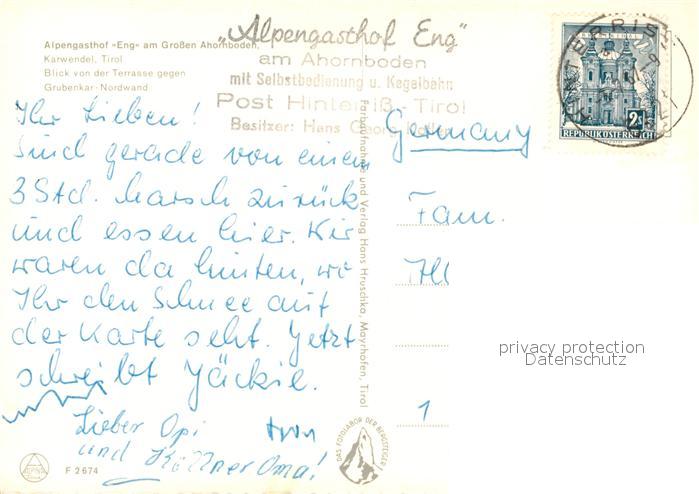 Alpengasthof »Eng« am Großen Ahornboden,
Karwendel, Tirol
Blick von der Terrasse gegen
Grubenkar-Nordwand
„Alpengasthof Eng“
am Ahornboden
mit Selbstbedienung u. Kegelbahn
Post Hinterriß - Tirol
Besitzer: Hans Georg
HINTERRISS
2S
REPUBLIK ÖSTERREICH
Ihr Lieben!
Sind gerade von einem
3 Std. harsch zurück
und essen hier. Wir
waren da hinten, wo
Ihr den Schnee auf
der Karte seht. Jetzt
schreibt Jäckie.
Lieber Opi
und Köllner Oma!
F 2674
Farbaufnahme und Verlag Hans Hruschka, Mayrhofen, Tirol
DAS FOTOLABOR DER BERGSTEIGER
Germany
Fam.
1
privacy protection
Datenschutz